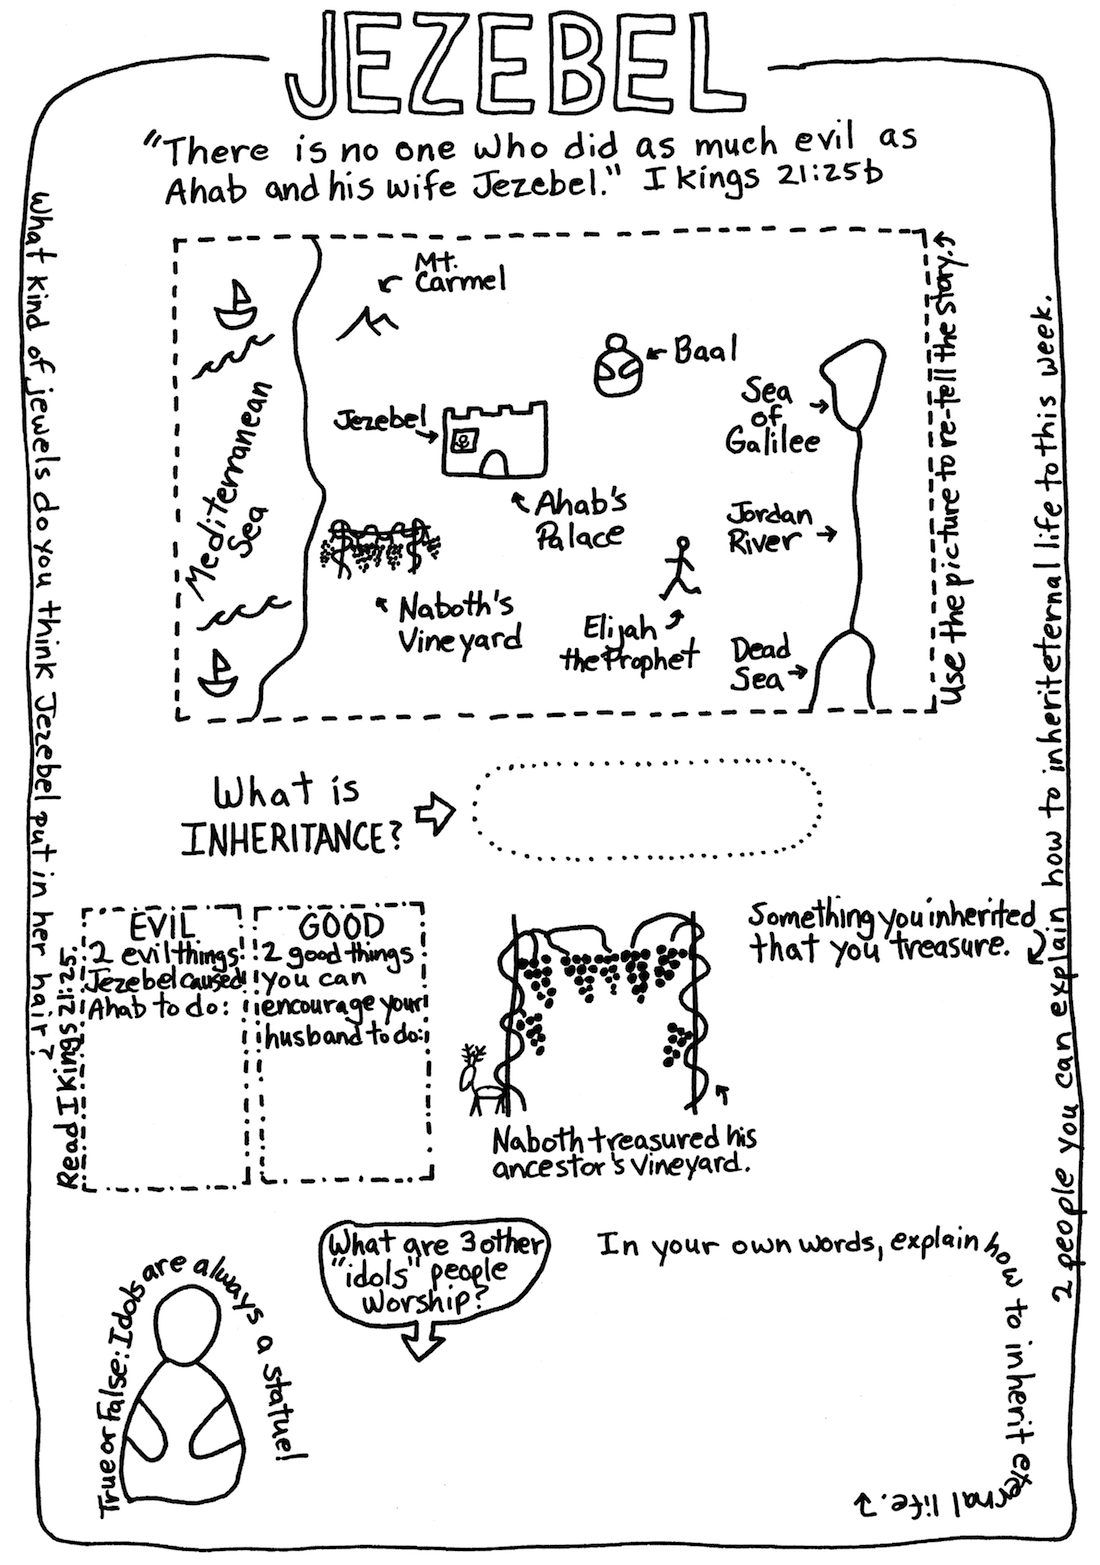 JEZEBEL
"There is no one who did as much evil as
Ahab and his wife Jezebel." I Kings 21:25b
What kind of jewels do you think Jezebel put in her hair?
Mt.
Carmel
Baal
Sea
of
Galilee
Jezebel
Mediterranean
Sea
Ahab's
Palace
Jordan
River
Naboth's
Vineyard
Elijah
the Prophet
Dead
Sea
Use the picture to re-tell the story.
2 people you can explain how to inherit eternal life to this week.
What is
INHERITANCE?
Read I Kings 21:25.
EVIL
2 evil things
Jezebel caused
Ahab to do:
GOOD
2 good things
you can
encourage your
husband to do:
Something you inherited
that you treasure.
Naboth treasured his
ancestor's vineyard.
True or False: Idols are always a statue!
What are 3 other
"idols" people
worship?
In your own words, explain how to inherit eternal life.